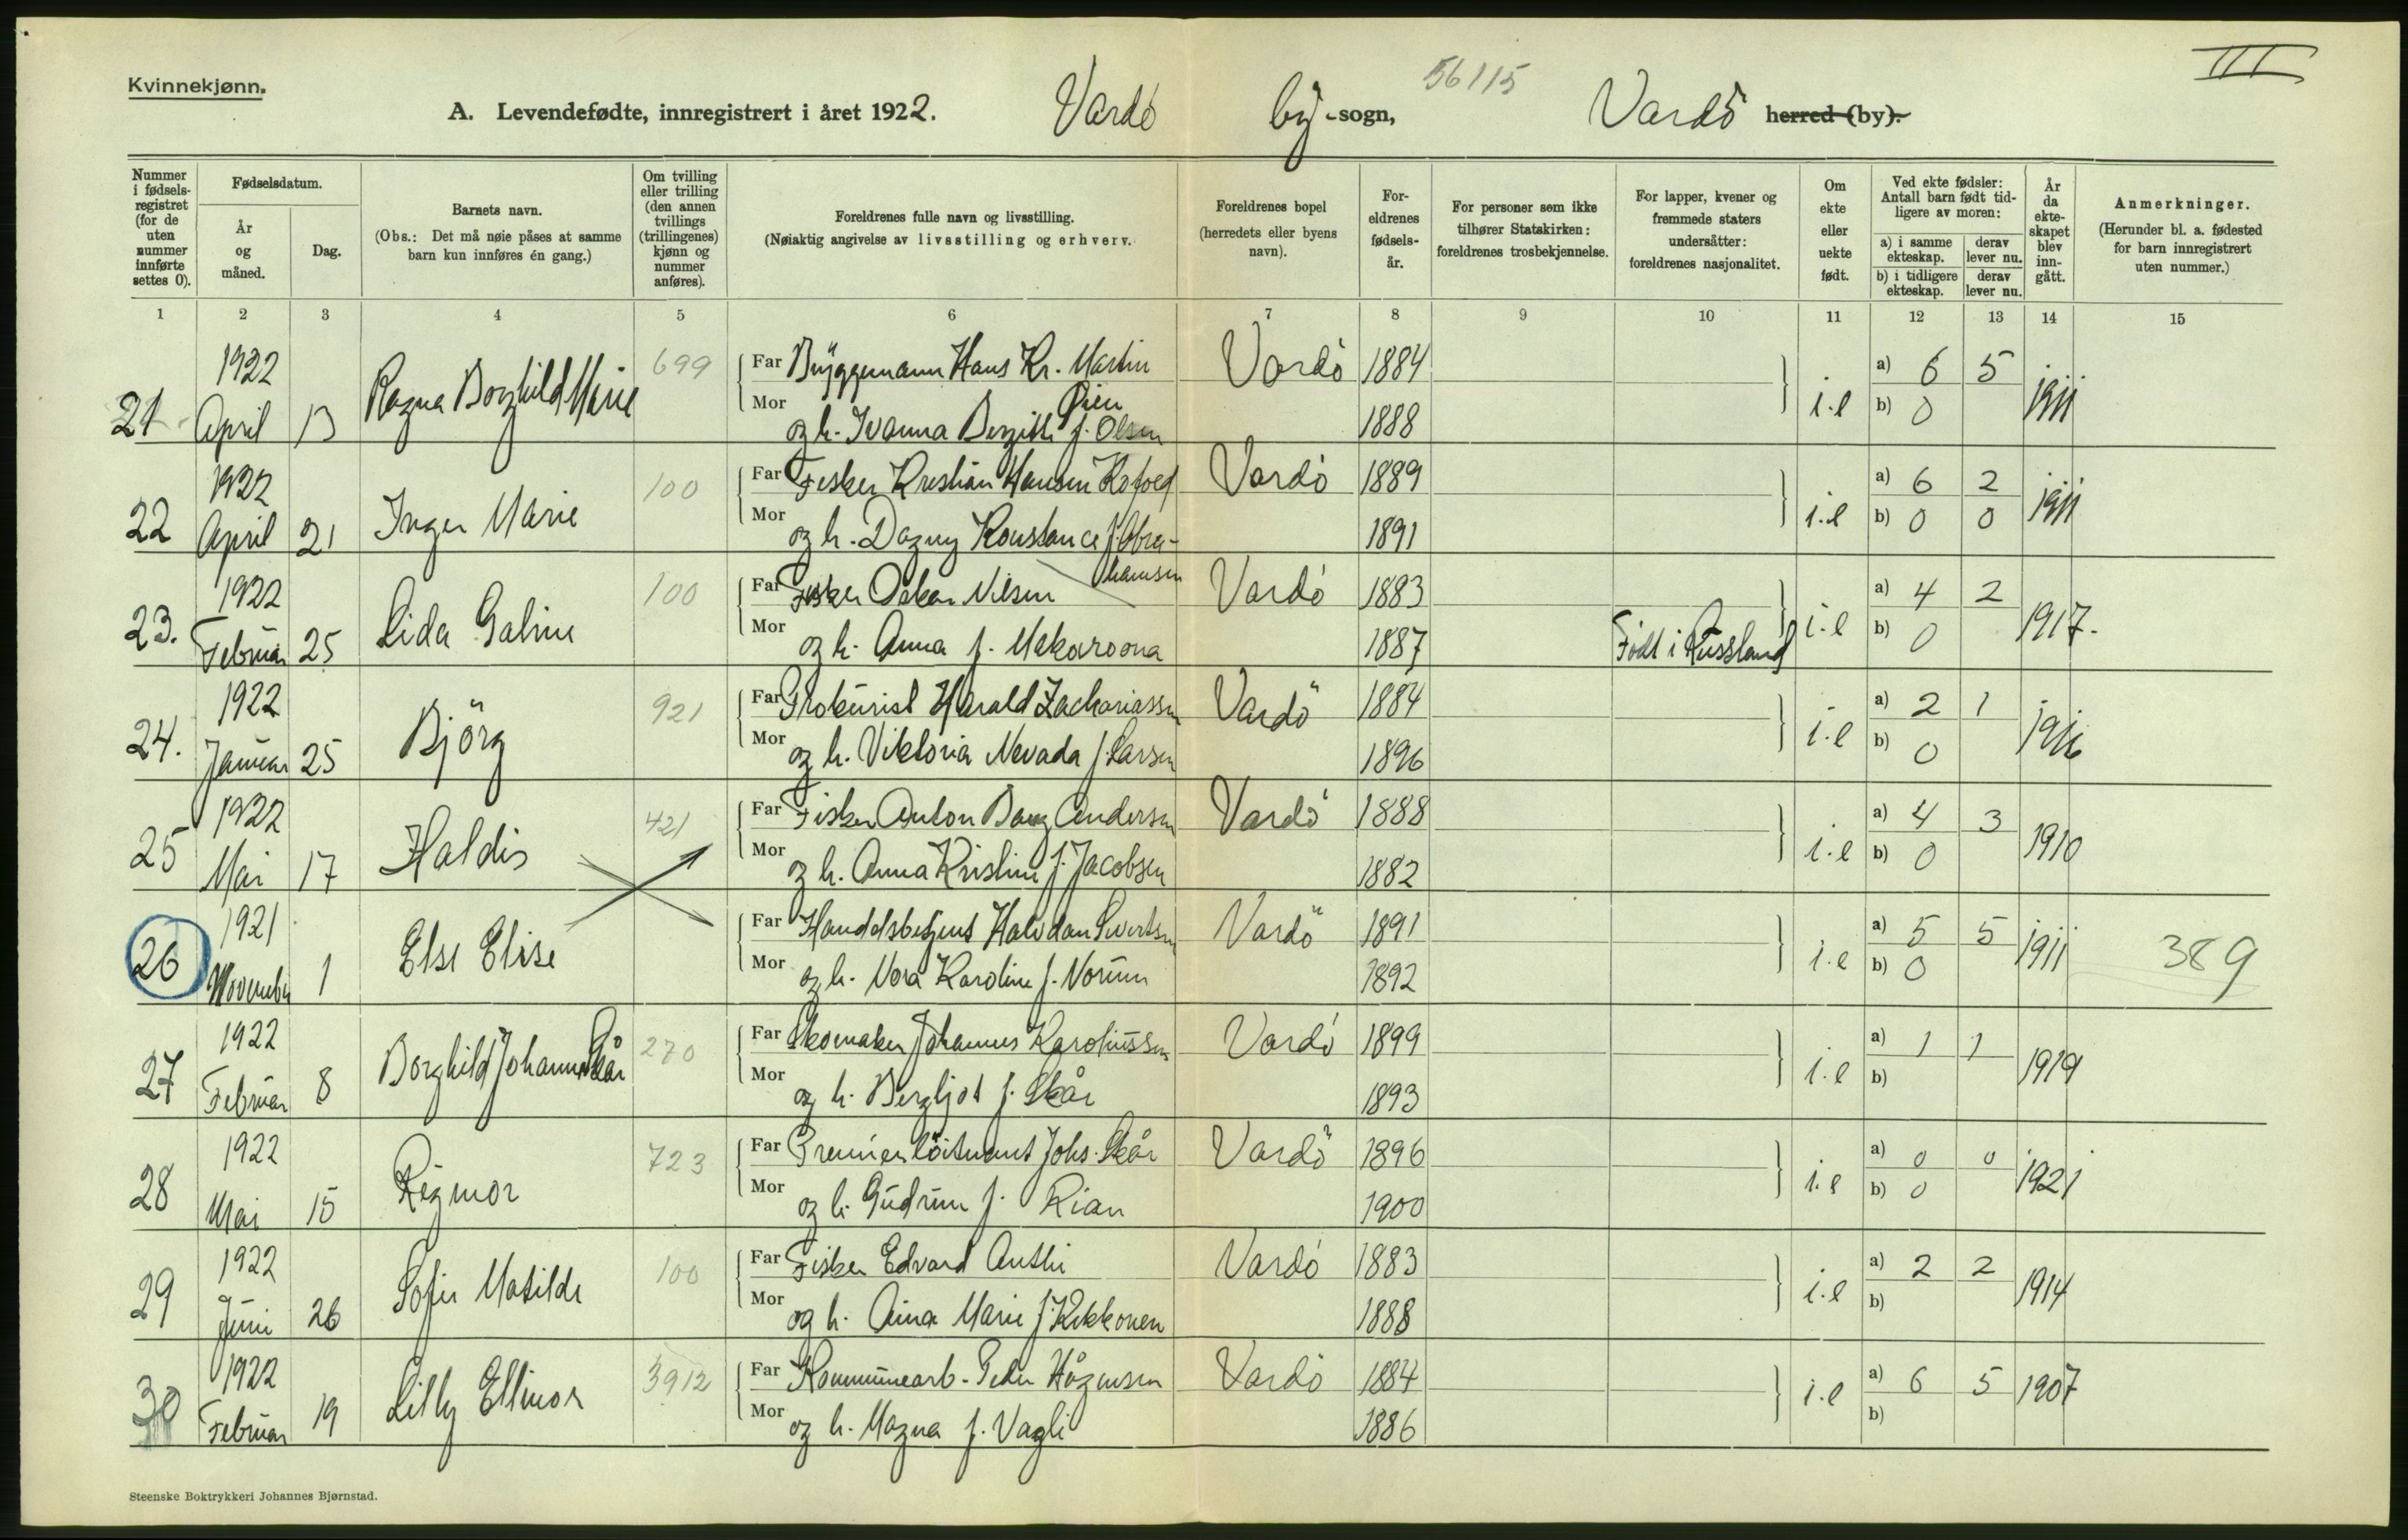 Kvinnekjønn.
III
56115
A. Levendefødte, innregistrert i året 1922. Vardö by-sogn, Vardö herred (by).
Nummer i fødsels-registret (for de uten nummer innførte settes 0).
Fødselsdatum.
År og måned.
Dag.
Barnets navn.
(Obs.: Det må nøie påses at samme barn kun innføres én gang.)
Om tvilling eller trilling (den annen tvillings (trillingenes) kjønn og nummer anføres).
Foreldrenes fulle navn og livsstilling.
(Nøiaktig angivelse av livsstilling og erhverv.
Foreldrenes bopel (herredets eller byens navn).
For-eldrenes fødsels-år.
For personer som ikke tilhører Statskirken: foreldrenes trosbekjennelse.
For lapper, kvener og fremmede staters undersåtter: foreldrenes nasjonalitet.
Om ekte eller uekte født.
Ved ekte fødsler: Antall barn født tid-ligere av moren:
a) i samme ekteskap. derav lever nu.
b) i tidligere ekteskap. derav lever nu.
År da ekte-skapet blev inn-gått.
Anmerkninger.
(Herunder bl. a. fødested for barn innregistrert uten nummer.)
1 2 3 4 5 6 7 8 9 10 11 12 13 14 15
21 1922 April 13 Ragna Borghild Marie 699 Far Bryggemann Hans Kr. Martin Vardö 1884 i.e a) 6 5 1911
Mor og h. Ivanna Bergitte f. Olsen Øien 1888 b) 0
22 1922 April 21 Inger Marie 100 Far Fisker Kristian Hansen Kofoed Vardö 1889 i.e a) 6 2 1911
Mor og h. Dagny Konstance f. Abra-hamsen 1891 b) 0 0
23. 1922 Februar 25 Lida Galine 100 Far Fisker Oskar Nilsen Vardö 1883 i.e a) 4 2 1917.
Mor og h. Anna f. Makaroona 1887 Födt i Russland b) 0
24. 1922 Januar 25 Björg 921 Far Prokurist Harald Zachariassen Vardö 1884 i.e a) 2 1 1916
Mor og h. Viktoria Nevada f. Larsen 1896 b) 0
25 1922 Mai 17 Haldis 421 Far Fisker Anton Bang Andersen Vardö 1888 i.e a) 4 3 1910
Mor og h. Anna Kristine f. Jacobsen 1882 b) 0
26 1921 November 1 Else Elise Far Handelsbetjent Halvdan Sivertsen Vardö 1891 i.e a) 5 5 1911 389
Mor og h. Nora Karoline f. Norum 1892 b) 0
27 1922 Februar 8 Borghild Johanne Skår 270 Far Skomaker Johannes Karoliussen Vardö 1899 i.e a) 1 1 1919
Mor og h. Bergljot f. Skår 1893 b)
28 1922 Mai 15 Rigmor 723 Far Premierlöitnant Johs. Skår Vardö 1896 i.e a) 0 0 1921
Mor og h. Gudrun f. Rian 1900 b) 0
29 1922 Juni 26 Sofie Matilde 100 Far Fisker Edvard Anthi Vardö 1883 i.e a) 2 2 1914
Mor og h. Aina Marie f. Kikkonen 1888 b)
30 1922 Februar 19 Lilly Ellinor 3912 Far Kommunearb. Peder Hågensen Vardö 1884 i.e a) 6 5 1907
Mor og h. Magna f. Vagli 1886 b)
Steenske Boktrykkeri Johannes Bjørnstad.